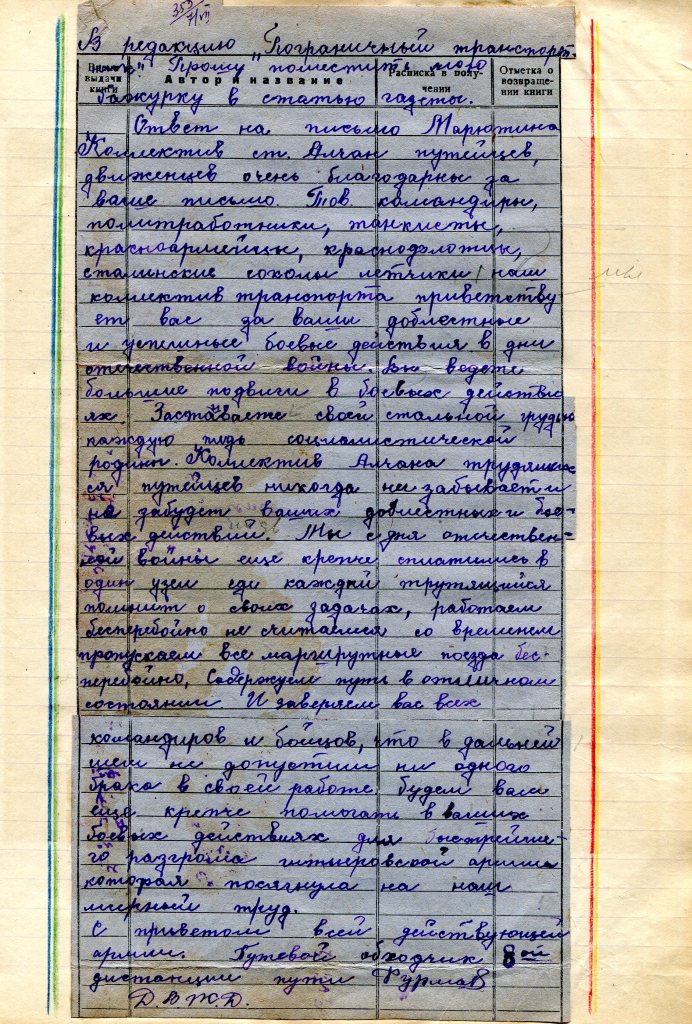 353
7/VII
В редакцию "Пограничный транспорт-
ник" Прошу поместить мою
Время выдачи книги
Автор и название
Расписка в получении
Отметка о возвращении книги
в статью газеты.
Ответ на письмо Марютина
Коллектив ст. Алчан путейцев,
движенцев очень благодарны за
ваше письмо. Тов. командиры,
политработники, танкисты,
красноармейцы, краснофлотцы,
сталинские соколы летчики! наш
мы
коллектив транспорта приветству
ет вас за ваши доблестные
и успешные боевые действия в дни
отечественной войны. Вы ведете
большие подвиги в боевых действи
ях. своей стальной грудью
каждую пядь социалистической
родины. Коллектив Алчана трудящих-
ся путейцев никогда не забывает и
не забудет ваших доблестных и бое-
вых действий. Мы с дня отечествен-
ной войны еще крепче сплатились в
один узел каждый трутящийся
помнит о своих задачах, работаем
бесперебойно не считаемся со временем
пропускаем все маршрутные поезда бес-
перебойно, Содержуем путь в отличном
состоянии И заверяем вас всех
командиров и бойцов, что в дальней
шем не допустим ни одного
брака в своей работе будем вам
еще крепче помогать в ваших
боевых действиях для быстрейше-
го разгрома гитлеровской армии
которая посягнула на наш
мирный труд.
С приветом всей действующей
армии. Путевой обходчик 8ой
дистанции пути
Д.В.Ж.Д.